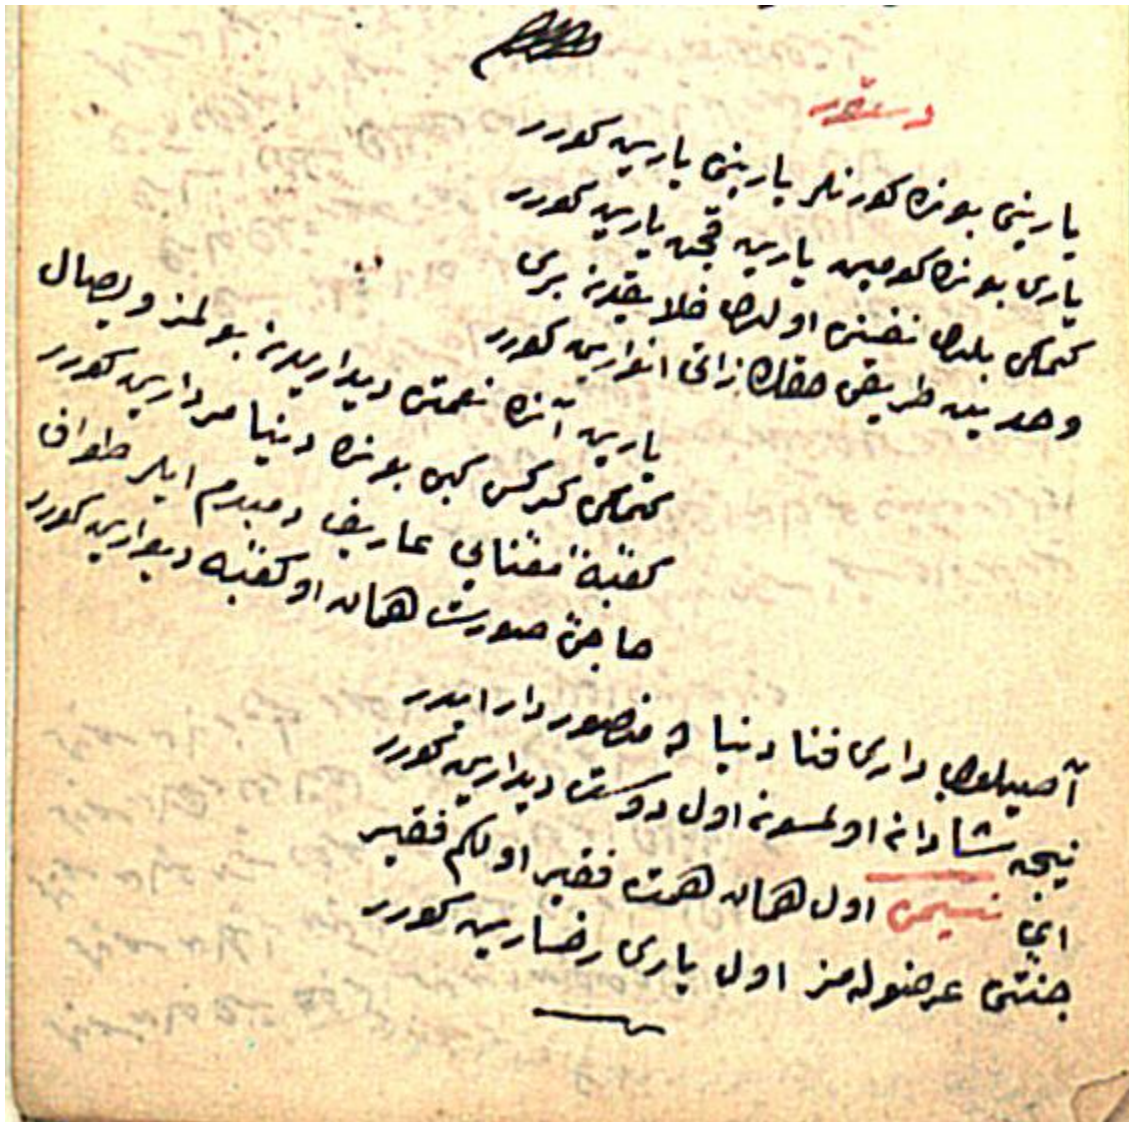 دستور
یارینی بونده کورنلر یارینی یارین کورر
یاری بونده کورمین یارین قچن یارین کورر
کیمکی بلدی نفسنی اولدی خلایقدن بری
وحدیت طریقی حقك ذاتی انوارین کورر
یارین آنده نعمتی دیداریدن بولمز ویصال
کیمکی کرکس کبی بونده دنیا مردارین کورر
کعبهٔ معنایی عاریف دمبدم ایلر طواف
حاجیٔ صورت همان او کعبه دیوارین کورر
آصیلوب داری فنا دنیا ده منصور دار ایدر
نیجه شادان اولمسون اول دوست دیدارین کورر
ای نسیمی اول همان همت فقیر اولکم فقیر
جنتی عرضوله‌مز اول یاری رخسارین کورر